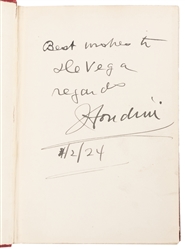 Best wishes to
De Vega
regards
Houdini
1/2/24